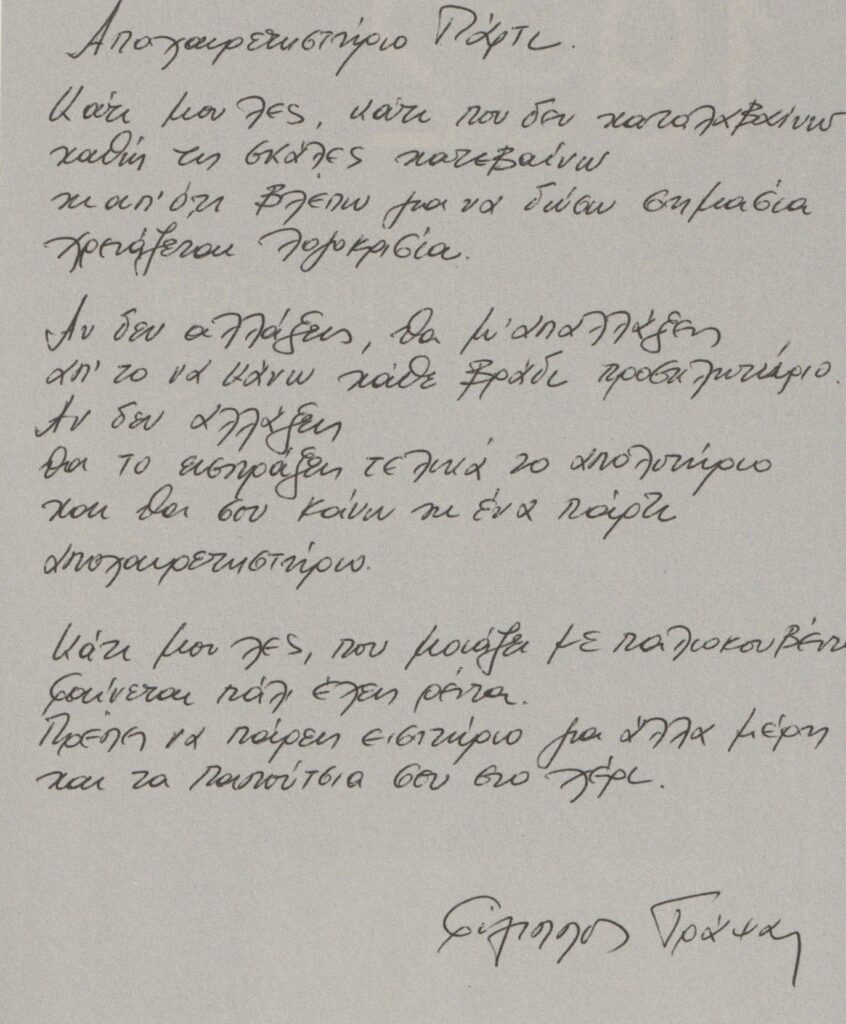 Αποχαιρετηστήριο Πάρτι.
Κάτι μου λες, κάτι που δεν καταλαβαίνω
καθώς τις σκάλες κατεβαίνω
κι απ' ότι βλέπω για να δώσω σημασία
χρειάζεται λογοκρισία.
Αν δεν αλλάξεις, θα μ' απαλλάξεις
απ' το να κάνω κάθε βράδι προσκλητήριο.
Αν δεν αλλάξεις
θα το εισπράξεις τελικά το απολυτήριο
και θα σου κάνω κι ένα πάρτι
αποχαιρετηστήριο.
Κάτι μου λες, που μοιάζει με παλιοκουβέντ
Φαίνεται πάλι έχεις ρέντα.
Πρέπει να πάρεις εισιτήριο για άλλα μέρη
και τα παπούτσια σου στο χέρι.
Φίλιππος Γράψας